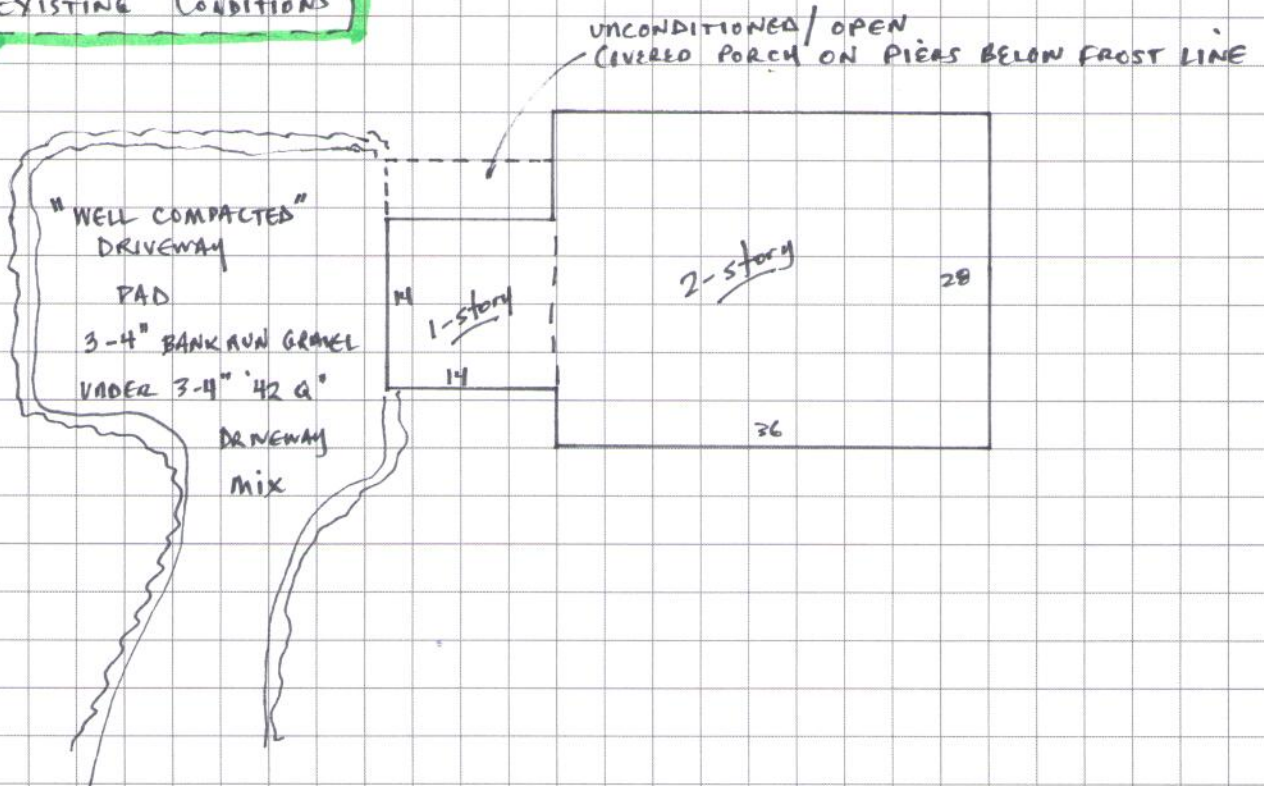 EXISTING CONDITIONS
UNCONDITIONED/ OPEN
COVERED PORCH ON PIERS BELOW FROST LINE
"WELL COMPACTED"
DRIVEWAY
PAD
3-4" BANK RUN GRAVEL
UNDER 3-4" '42 Q"
DRIVEWAY
MIX
14
1-story
14
2-story
28
36